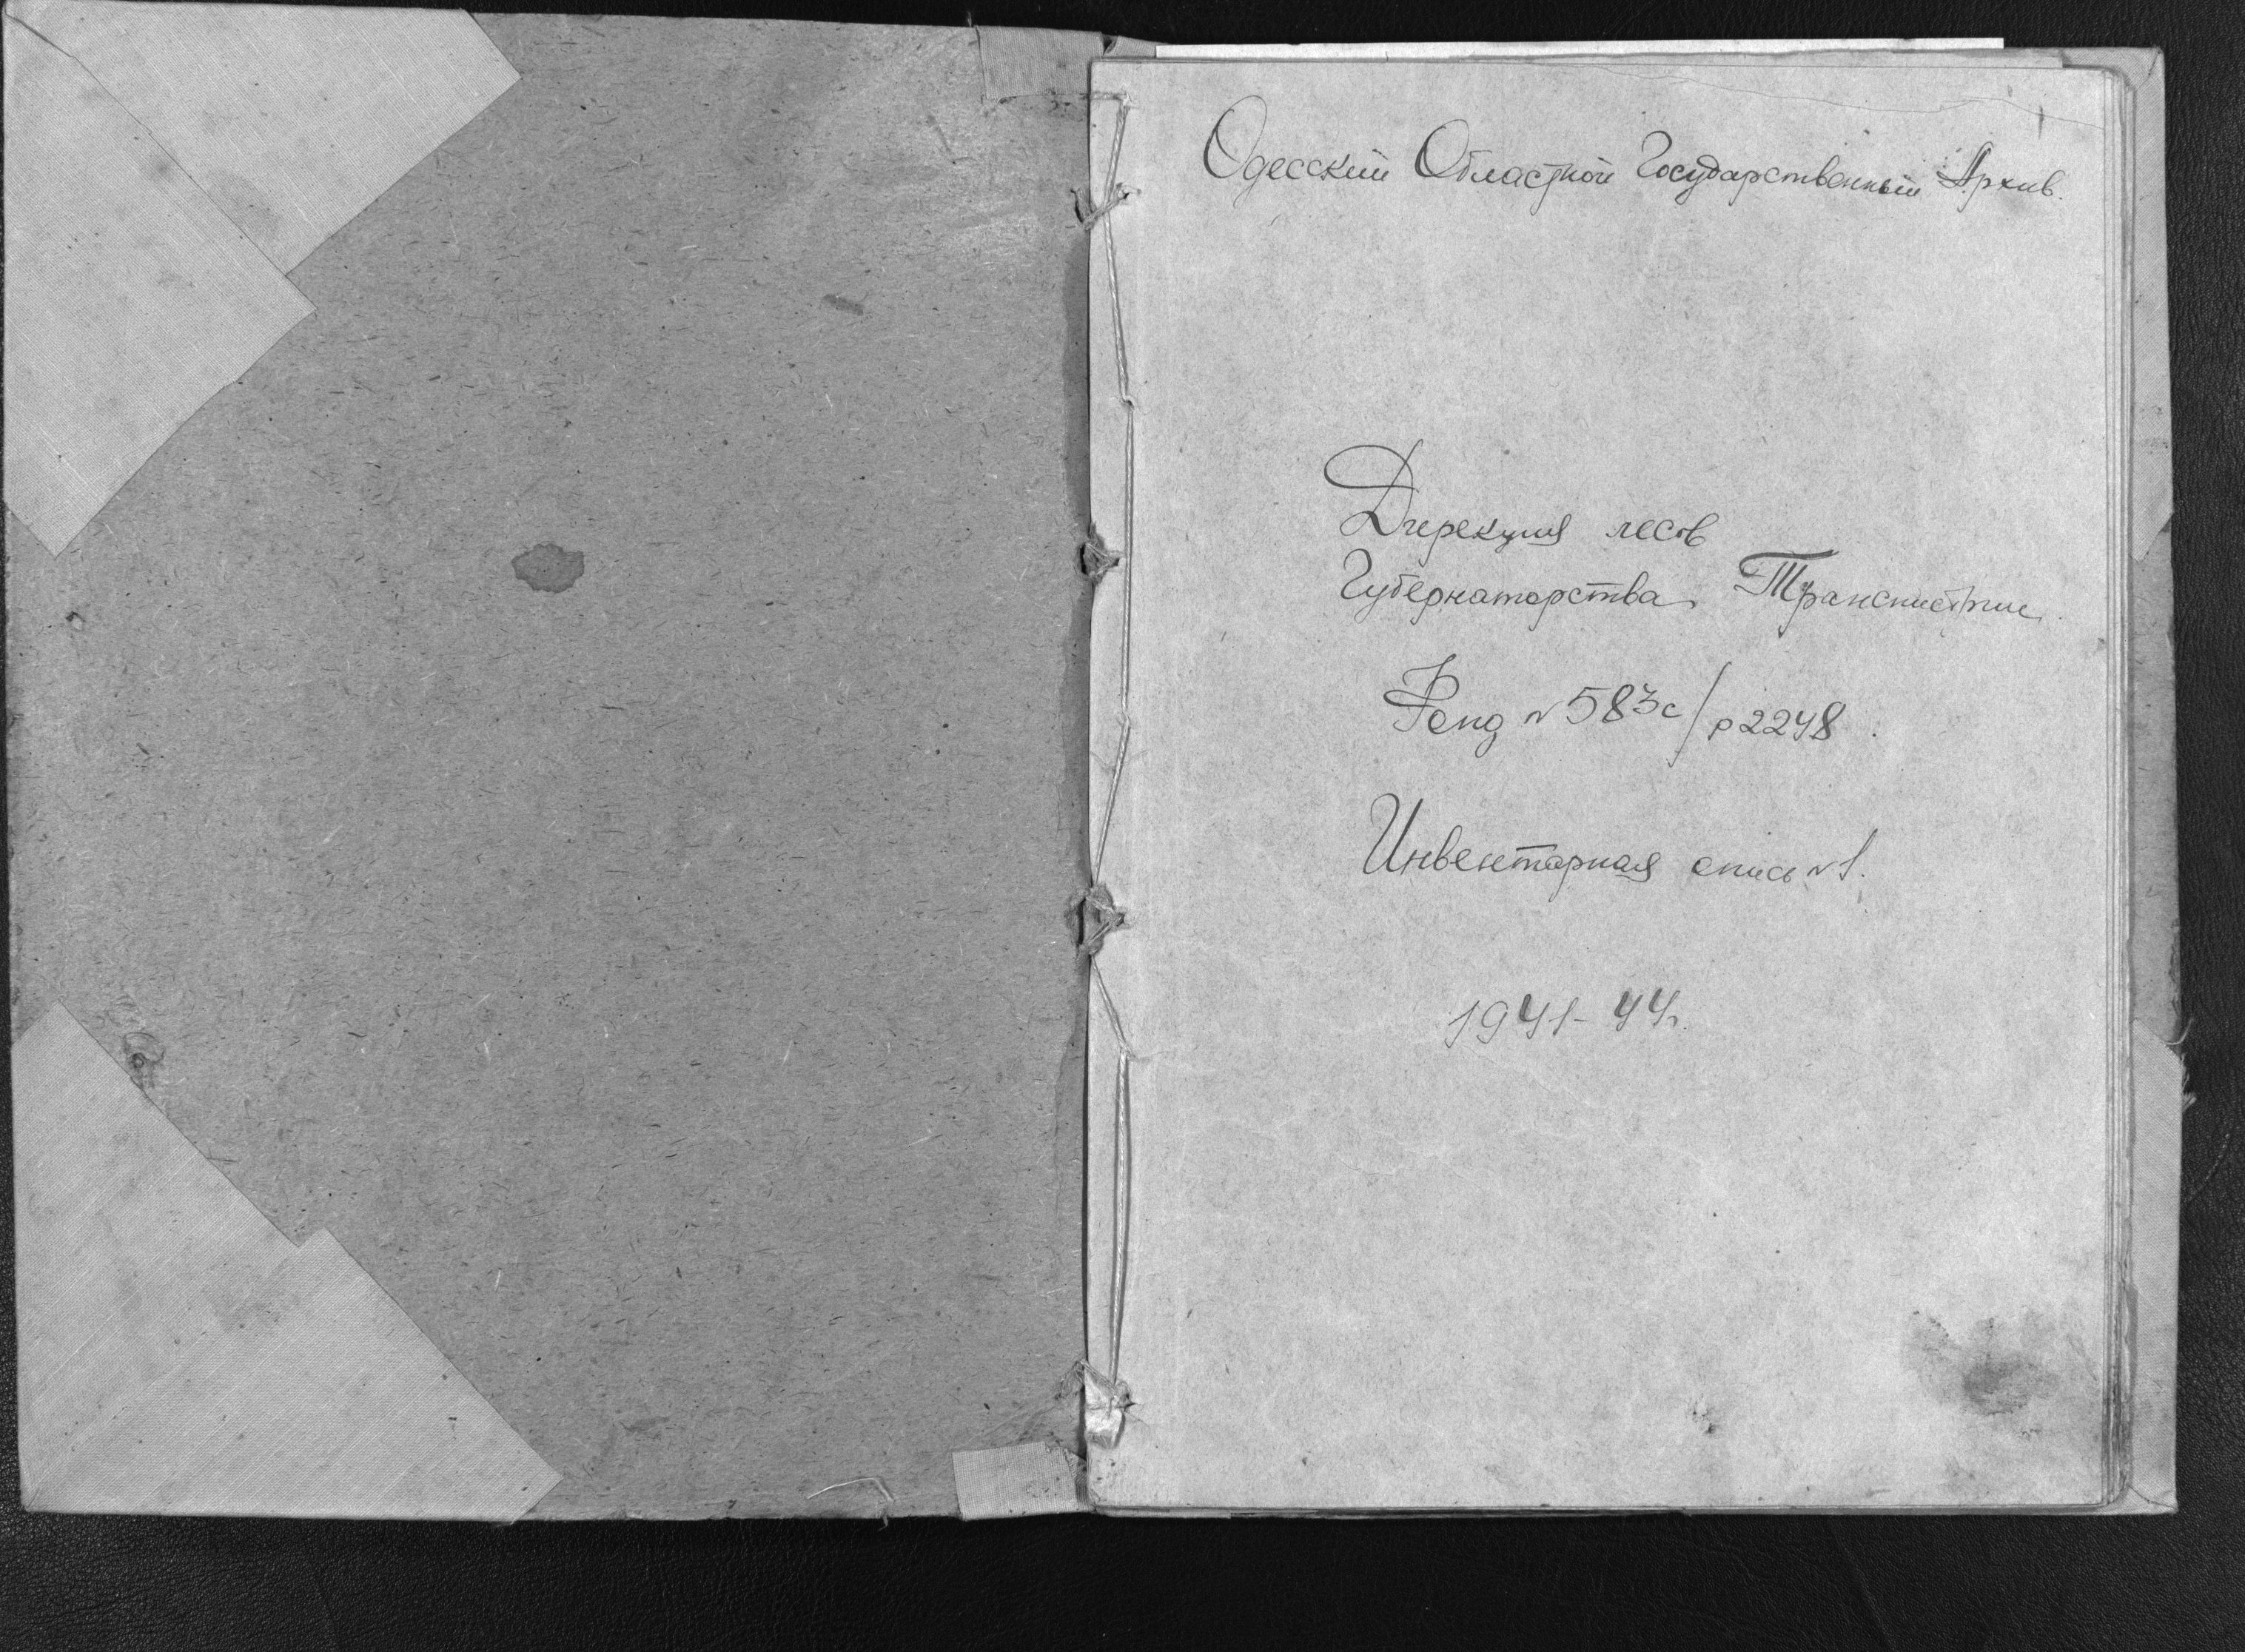 Одесский Областной Государственный Архив.
Дирекция лесов
Губернаторства Транснистрии.
Фонд № 583с/р2248.
Инвентарная опись №1.
1941-44г.